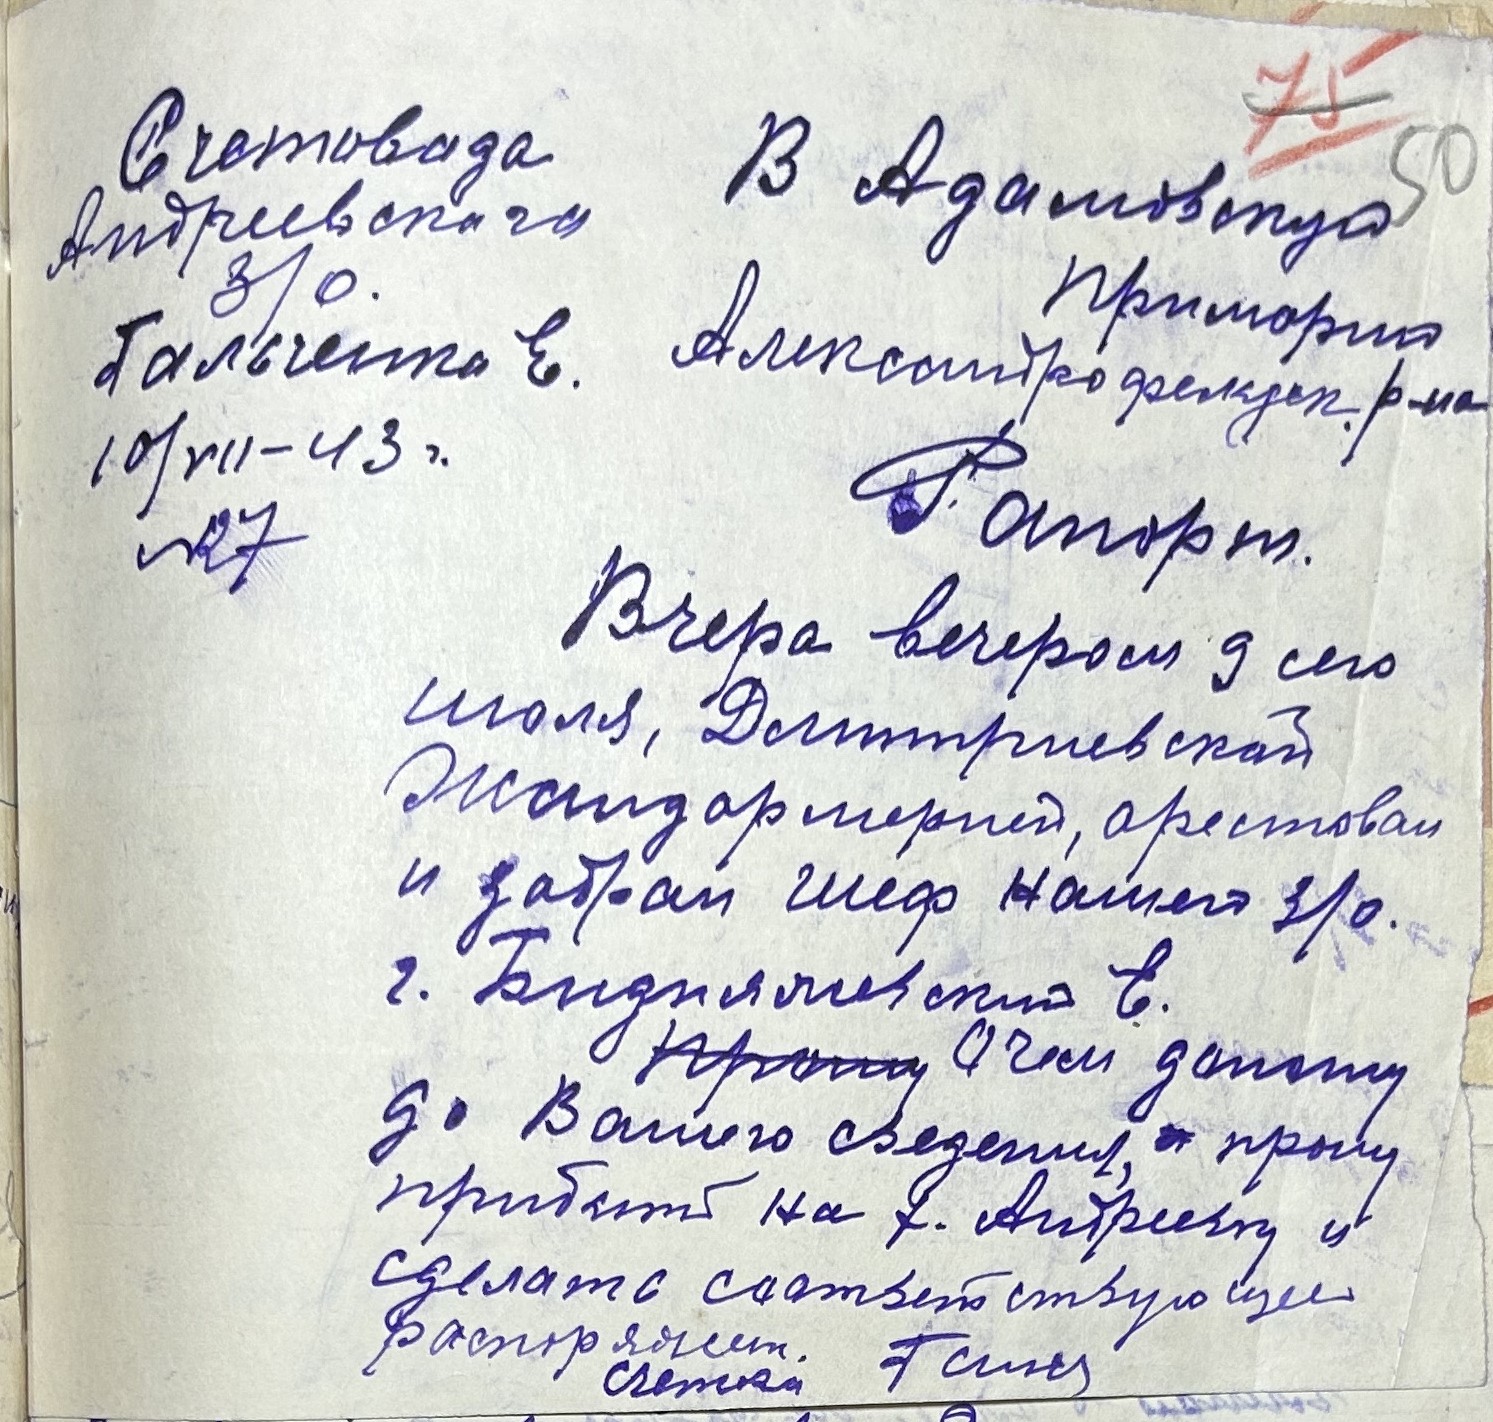 75
50
Счетовада
Андреевскага
з/о.
Гальченка Е.
10/VII-43 г.
№27
В Адамовскую
Примарию
Александрофельдск. р-на
Рапорт.
Вчера вечером 9 сего
июля, Дмитриевской
Жандармерией, арестован
и забран шеф нашей з/о.
г. Бидняжевский Е.
Прошу О чем доношу
до Вашего сведения, и прошу
прибыть на х. Андреевку и
сделать соответствующее
распоряжен.
Счетовод